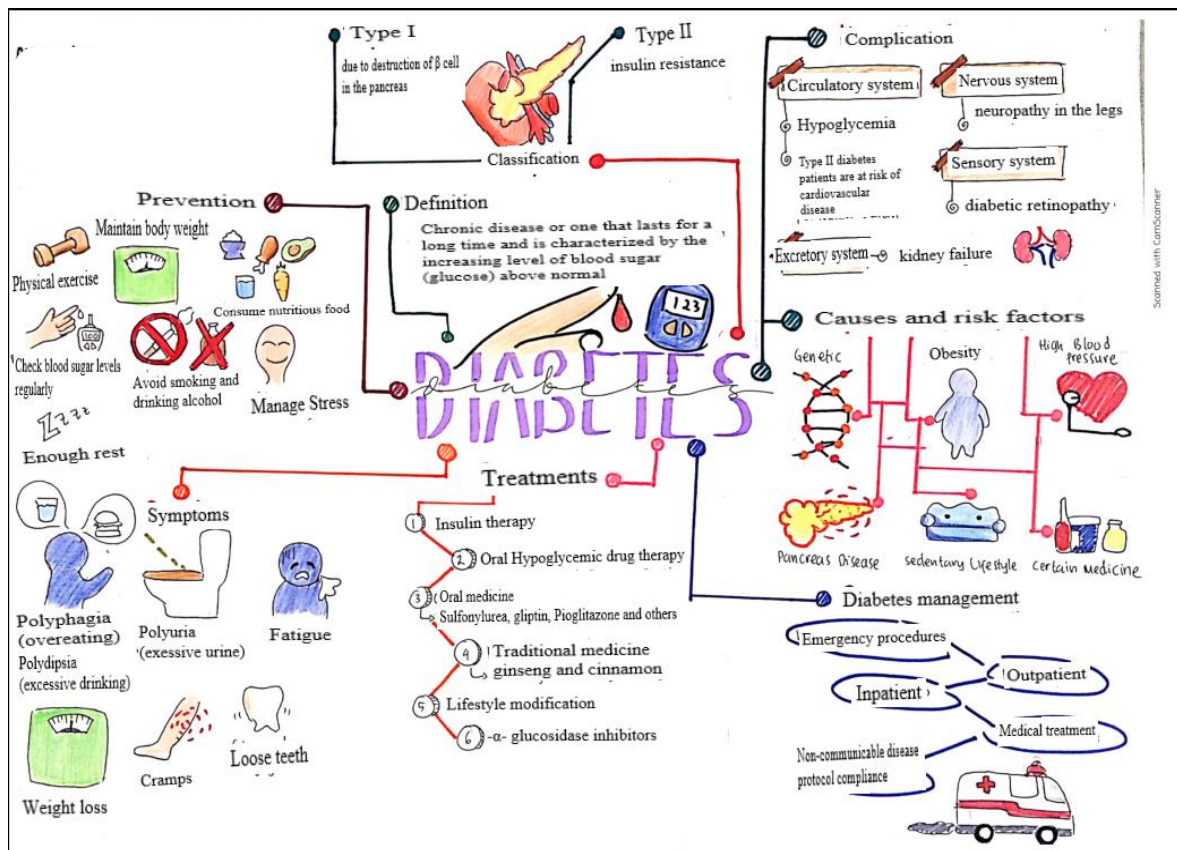 Type I
due to destruction of β cell
in the pancreas
Type II
insulin resistance
Classification
Complication
Circulatory system
Hypoglycemia
Type II diabetes
patients are at risk of
cardiovascular
disease
Nervous system
neuropathy in the legs
Sensory system
diabetic retinopathy
Excretory system
kidney failure
Scanned with CamScanner
Prevention
Maintain body weight
Physical exercise
Consume nutritious food
100
Check blood sugar levels
regularly
Avoid smoking and
drinking alcohol
Manage Stress
Zzzz
Enough rest
Definition
Chronic disease or one that lasts for a
long time and is characterized by the
increasing level of blood sugar
(glucose) above normal
123
DIABETES
diabetes
Causes and risk factors
Genetic
Obesity
High Blood
Pressure
Pancreas Disease
Sedentary Lifestyle
Certain Medicine
Symptoms
Polyphagia
(overeating)
Polydipsia
(excessive drinking)
Polyuria
(exessive urine)
Fatigue
Weight loss
Cramps
Loose teeth
Treatments
1 Insulin therapy
2 Oral Hypoglycemic drug therapy
3 Oral medicine
Sulfonylurea, gliptin, Pioglitazone and others
4 Traditional medicine
ginseng and cinnamon
5 Lifestyle modification
6 -α- glucosidase inhibitors
Diabetes management
Emergency procedures
Outpatient
Inpatient
Medical treatment
Non-communicable disease
protocol compliance